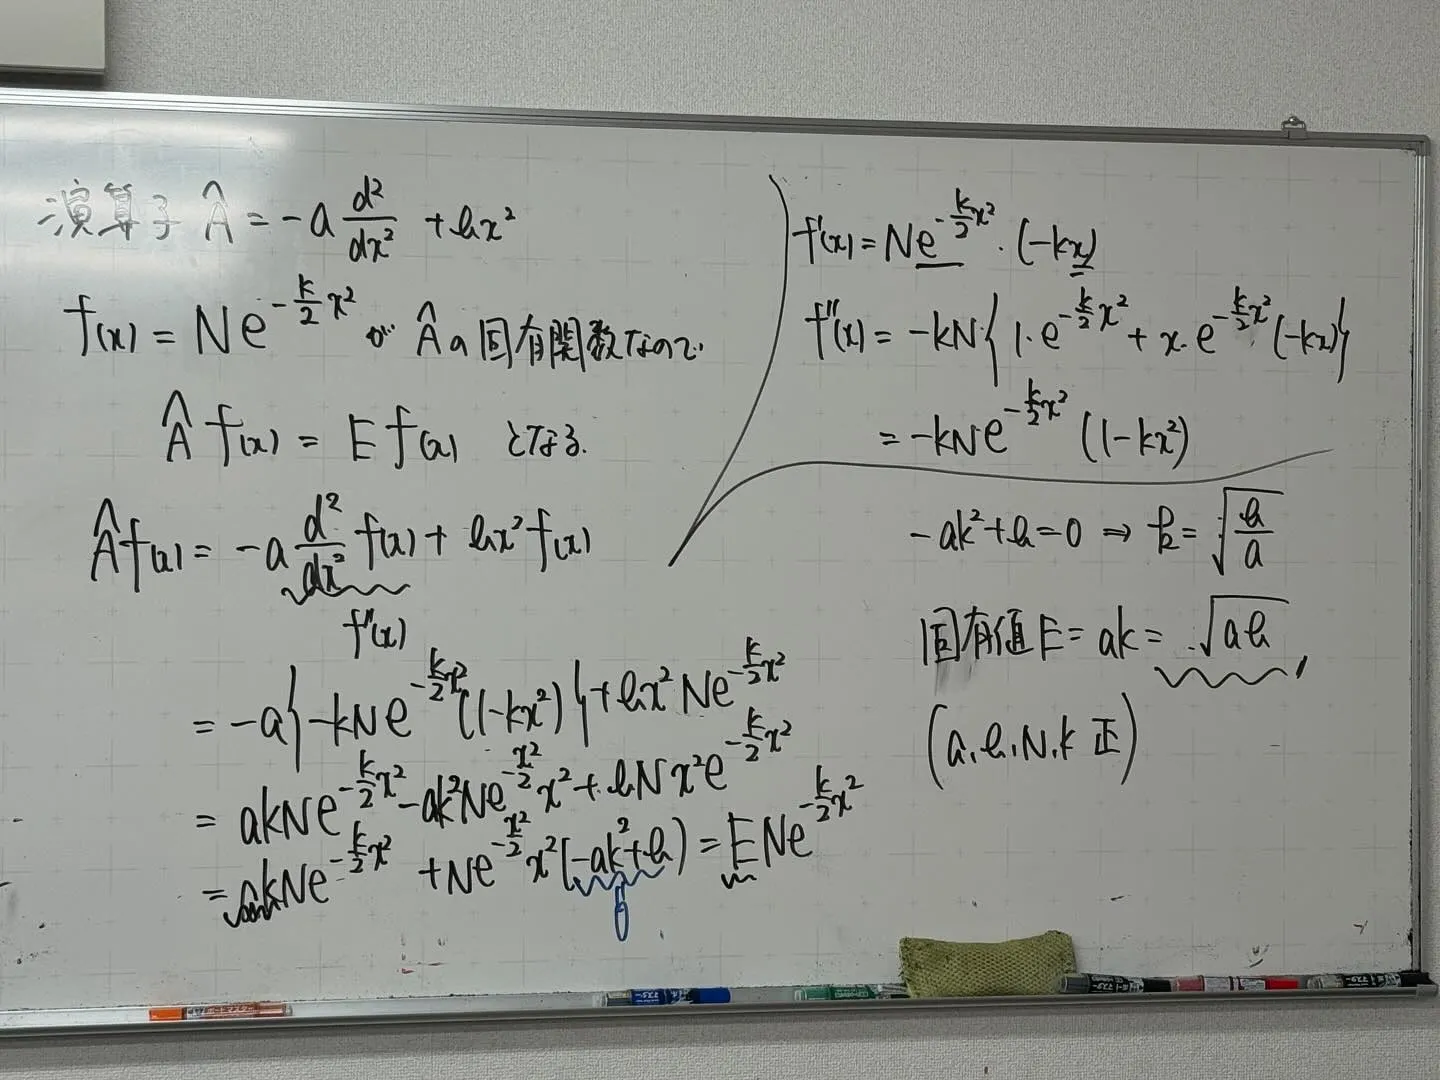 演算子 Â = -a d²/dx² + bx²
f(x) = Ne^{-k/2 x²} が Âの固有関数なので.
Â f(x) = E f(x) となる.
Âf(x) = -a d²/dx² f(x) + bx² f(x)
f''(x)
= -a{-kNe^{-k/2 x²}(1-kx²)} + bx² Ne^{-k/2 x²}
= akNe^{-k/2 x²} - ak²Ne^{-x²/2} x² + bNx²e^{-k/2 x²}
= akNe^{-k/2 x²} + Ne^{-x²/2} x²(-ak²+b) = ENe^{-k/2 x²}
0
f'(x) = Ne^{-k/2 x²}・(-kx)
f''(x) = -kN{1・e^{-k/2 x²} + x・e^{-k/2 x²}(-kx)}
= -kNe^{-k/2 x²} (1-kx²)
-ak²+b=0 ⇒ k=√(b/a)
固有値 E = ak = √ab,
(a,b,N,k 正)